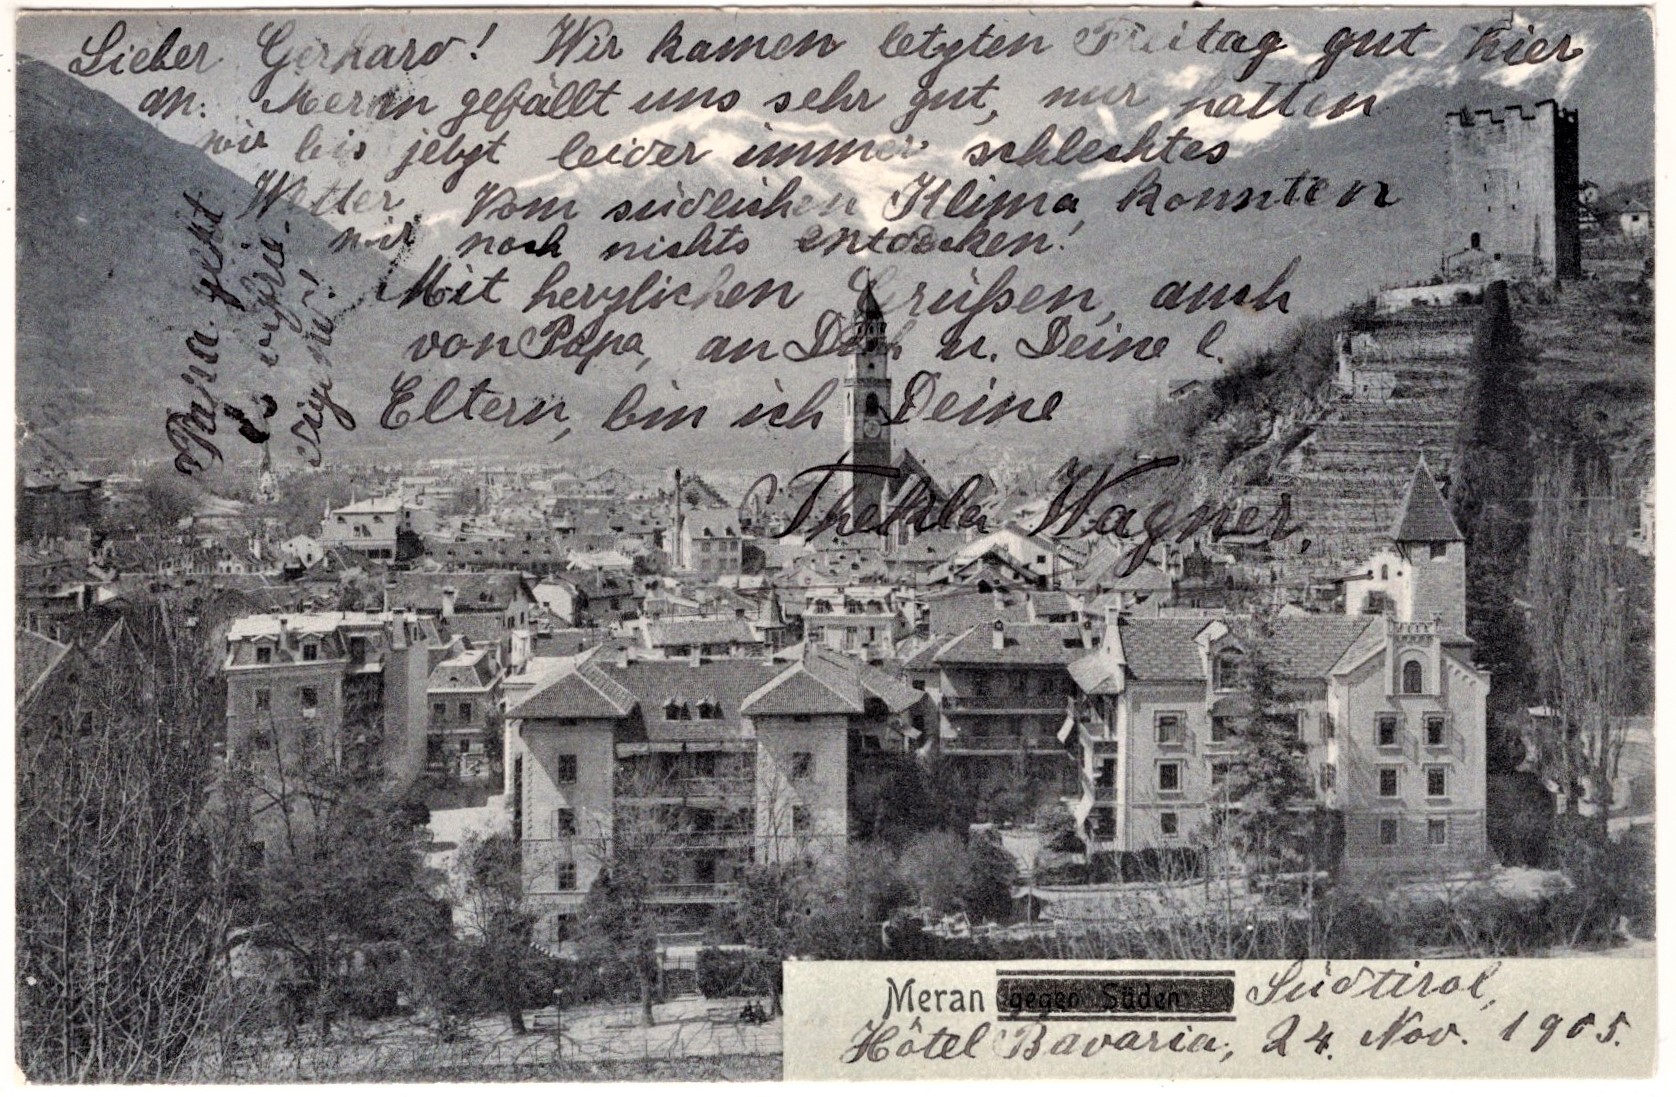 Lieber Gerhard! Wir kamen letzten Freitag gut hier
an. Meran gefällt uns sehr gut, nur hatten
wir bis jetzt leider immer schlechtes
Wetter. Vom südlichen Klima konnten
wir noch nichts entdecken!
Mit herzlichen Grüßen, auch
von Papa, an Dich u. Deine l.
Eltern, bin ich Deine
Thekla Wagner.
Papa geht
es
Meran gegen Süden Südtirol,
Hôtel Bavaria, 24. Nov. 1905.